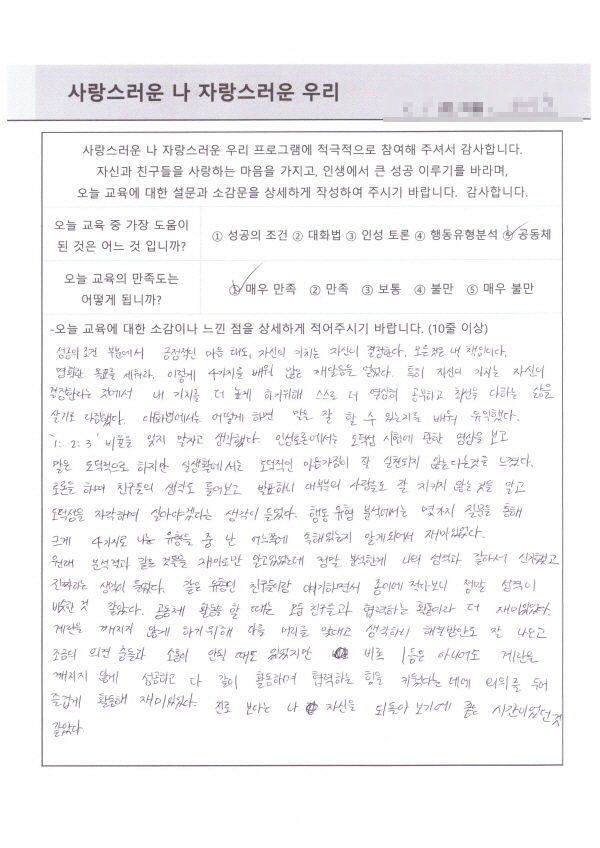 사랑스러운 나 자랑스러운 우리
사랑스러운 나 자랑스러운 우리 프로그램에 적극적으로 참여해 주셔서 감사합니다.
자신과 친구들을 사랑하는 마음을 가지고, 인생에서 큰 성공 이루기를 바라며,
오늘 교육에 대한 설문과 소감문을 상세하게 작성하여 주시기 바랍니다. 감사합니다.
오늘 교육 중 가장 도움이
된 것은 어느 것 입니까?
① 성공의 조건 ② 대화법 ③ 인성 토론 ④ 행동유형분석 ⑤ 공동체
오늘 교육의 만족도는
어떻게 됩니까?
① 매우 만족 ② 만족 ③ 보통 ④ 불만 ⑤ 매우 불만
-오늘 교육에 대한 소감이나 느낀 점을 상세하게 적어주시기 바랍니다. (10줄 이상)
성공의 조건 부분에서 긍정적인 마음 태도, 자신의 가치는 자신이 결정한다. 모든것은 내 책임이다.
명확한 목표를 세워라. 이렇게 4가지를 배워 많은 깨달음을 얻었다. 특히 자신의 가치는 자신이
결정한다는 것에서 내 가치를 더 높게 하기위해 스스로 더 열심히 공부하고 최선을 다하는 삶을
살기로 다짐했다. 대화법에서는 어떻게 하면 말을 잘 할 수 있는지를 배워 유익했다.
'1:2:3' 비율을 잊지 말자고 생각했다. 인성토론에서는 도덕성 시험에 관한 영상을 보고
말은 도덕적으로 하지만 실생활에서는 도덕적인 마음가짐이 잘 실천되지 않는다는것을 느꼈다.
토론을 하며 친구들의 생각도 들어보고 발표하니 대부분의 사람들도 잘 지키지 않는 것을 알고
도덕성을 자각하며 살아야겠다는 생각이 들었다. 행동 유형 분석에서는 몇가지 질문을 통해
크게 4가지로 나눈 유형들 중 난 어느쪽에 속해있는지 알게되어서 재미있었다.
원래 분석결과 같은 것들을 재미로만 알고있었는데 정말 분석한게 나의 성격과 같아서 신기했고
진짜라는 생각이 들었다. 같은 유형인 친구들이랑 얘기하면서 종이에 적다보니 정말 성격이
비슷한 것 같았다. 공동체 활동을 할 때는 모둠 친구들과 협력하는 활동이라 더 재미있었다.
계란을 깨지지 않게 하기위해 다들 머리를 맞대고 생각하니 해결방안도 잘 나오고
조금의 의견 충돌과 소통이 안될 때도 있었지만 비록 1등은 아니어도 계란을
깨지지 않게 성공하고 다 같이 활동하며 협력하는 힘을 키웠다는 데에 의의를 두어
즐겁게 활동해 재미있었다. 진로 보다는 나 자신을 되돌아 보기에 좋은 시간이었던것
같았다.